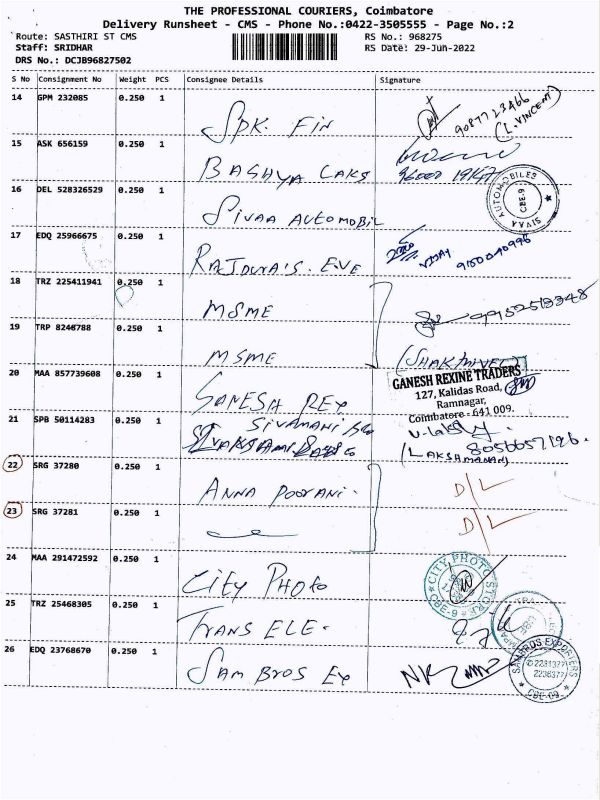 THE PROFESSIONAL COURIERS, Coimbatore
Delivery Runsheet - CMS - Phone No.:0422-3505555 - Page No.:2
Route: SASTHIRI ST CMS
RS No.: 968275
Staff: SRIDHAR
RS Date: 29-Jun-2022
DRS No.: DCJB96827502
S No Consignment No Weight PCS Consignee Details Signature
14 GPM 232085 0.250 1
SPK. FIN
9087723466
(L.VINCENT)
15 ASK 656159 0.250 1
BAGHYA LAKS
96000
16 DEL 528326529 0.250 1
SIVAA AUTOMOBIL
AUTOMOBILES
CBE-9
17 EDQ 25966675 0.250 1
RAJDURA'S. EVE
VIJAY
9150040996
18 TRZ 225411941 0.250 1
MSME
9952513348
19 TRP 8246788 0.250 1
MSME
(SHAKTHIVEL)
20 MAA 857739608 0.250 1
GANESH REX
GANESH REXINE TRADERS
127, Kalidas Road,
Ramnagar,
Coimbatore - 641 009.
21 SPB 50114283 0.250 1
SIVAMANI
(LAKSHMANAN)
8056657196.
22 SRG 37280 0.250 1
ANNA POORANI.
D/L
23 SRG 37281 0.250 1
D/L
24 MAA 291472592 0.250 1
CITY PHOTO
CITY PHOTO STORE
CBE-9
25 TRZ 25468305 0.250 1
TRANS ELE.
26 EDQ 23768670 0.250 1
SAM BROS EX
SAMBROS EXPORTERS
2231377
2236377
CBE-09.